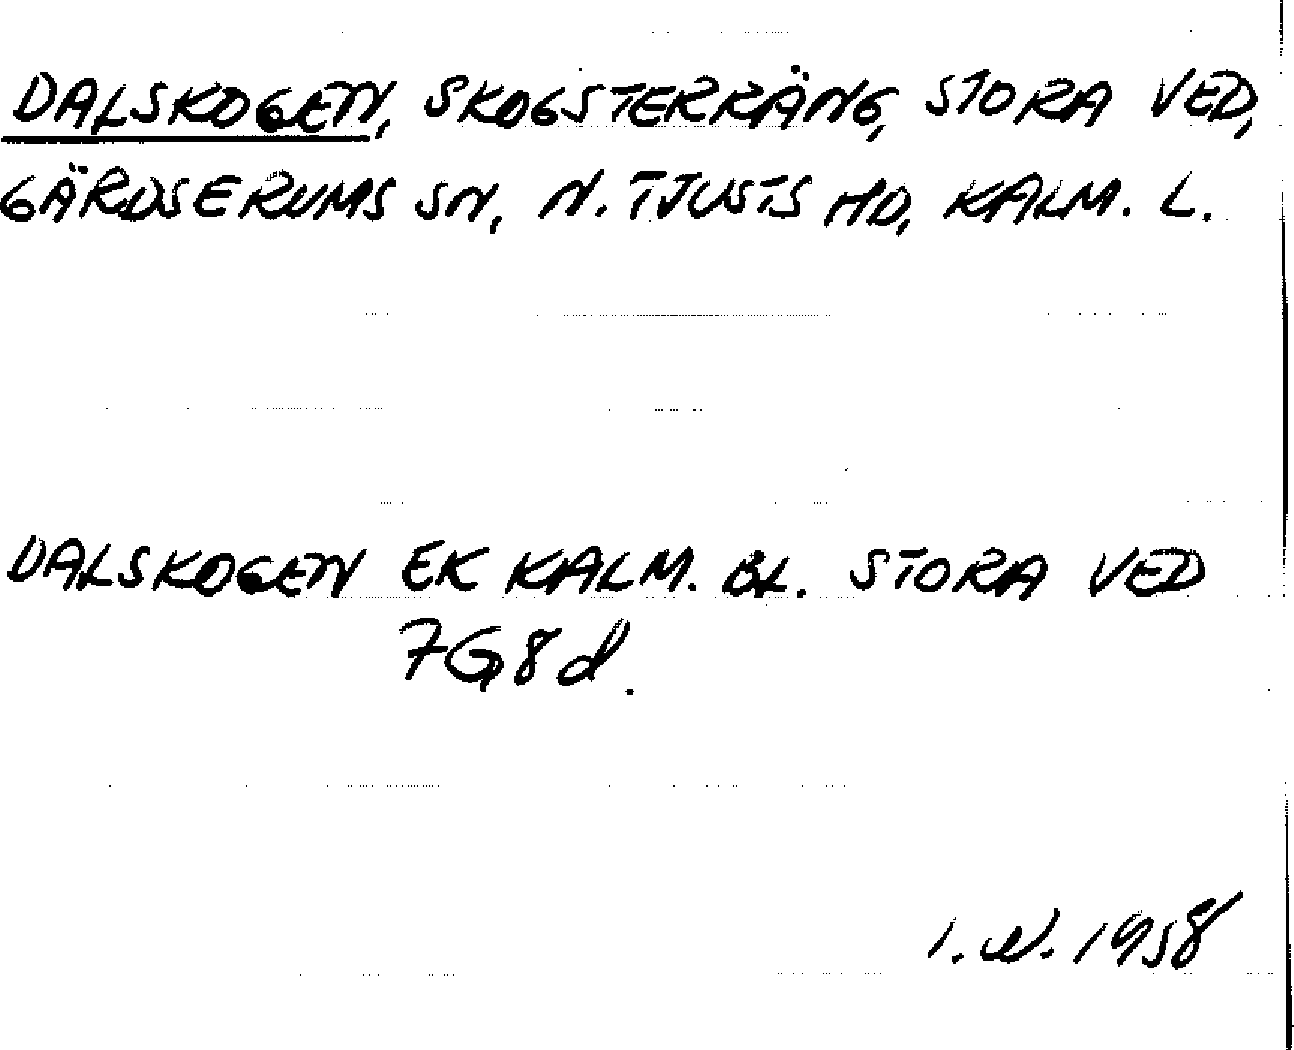 DALSKOGEN, SKOGSTERRÄNG, STORA VED,
GÄRDSERUMS SN, N. TJUSTS HD, KALM. L.
DALSKOGEN EK KALM. BL. STORA VED
7G8d.
1958